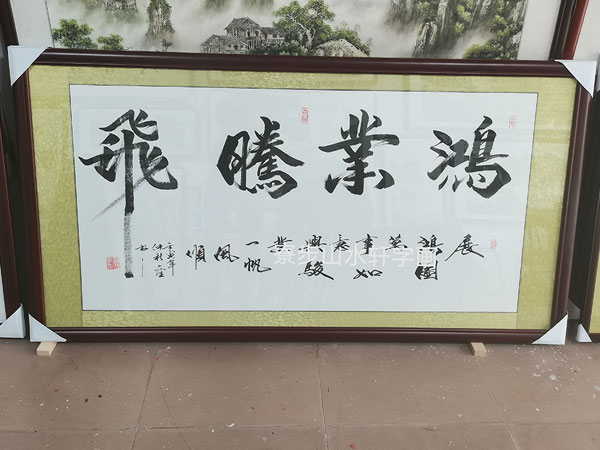 鴻業騰飛
展鴻圖萬事如意興駿業一帆風順
壬寅年
仲秋
景步山水轩字画